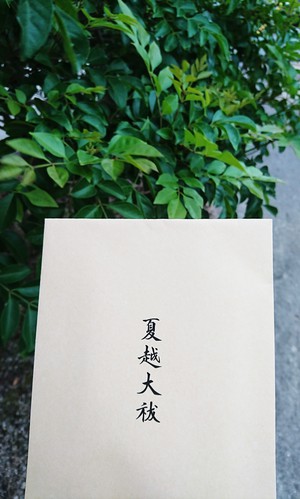 夏越大祓